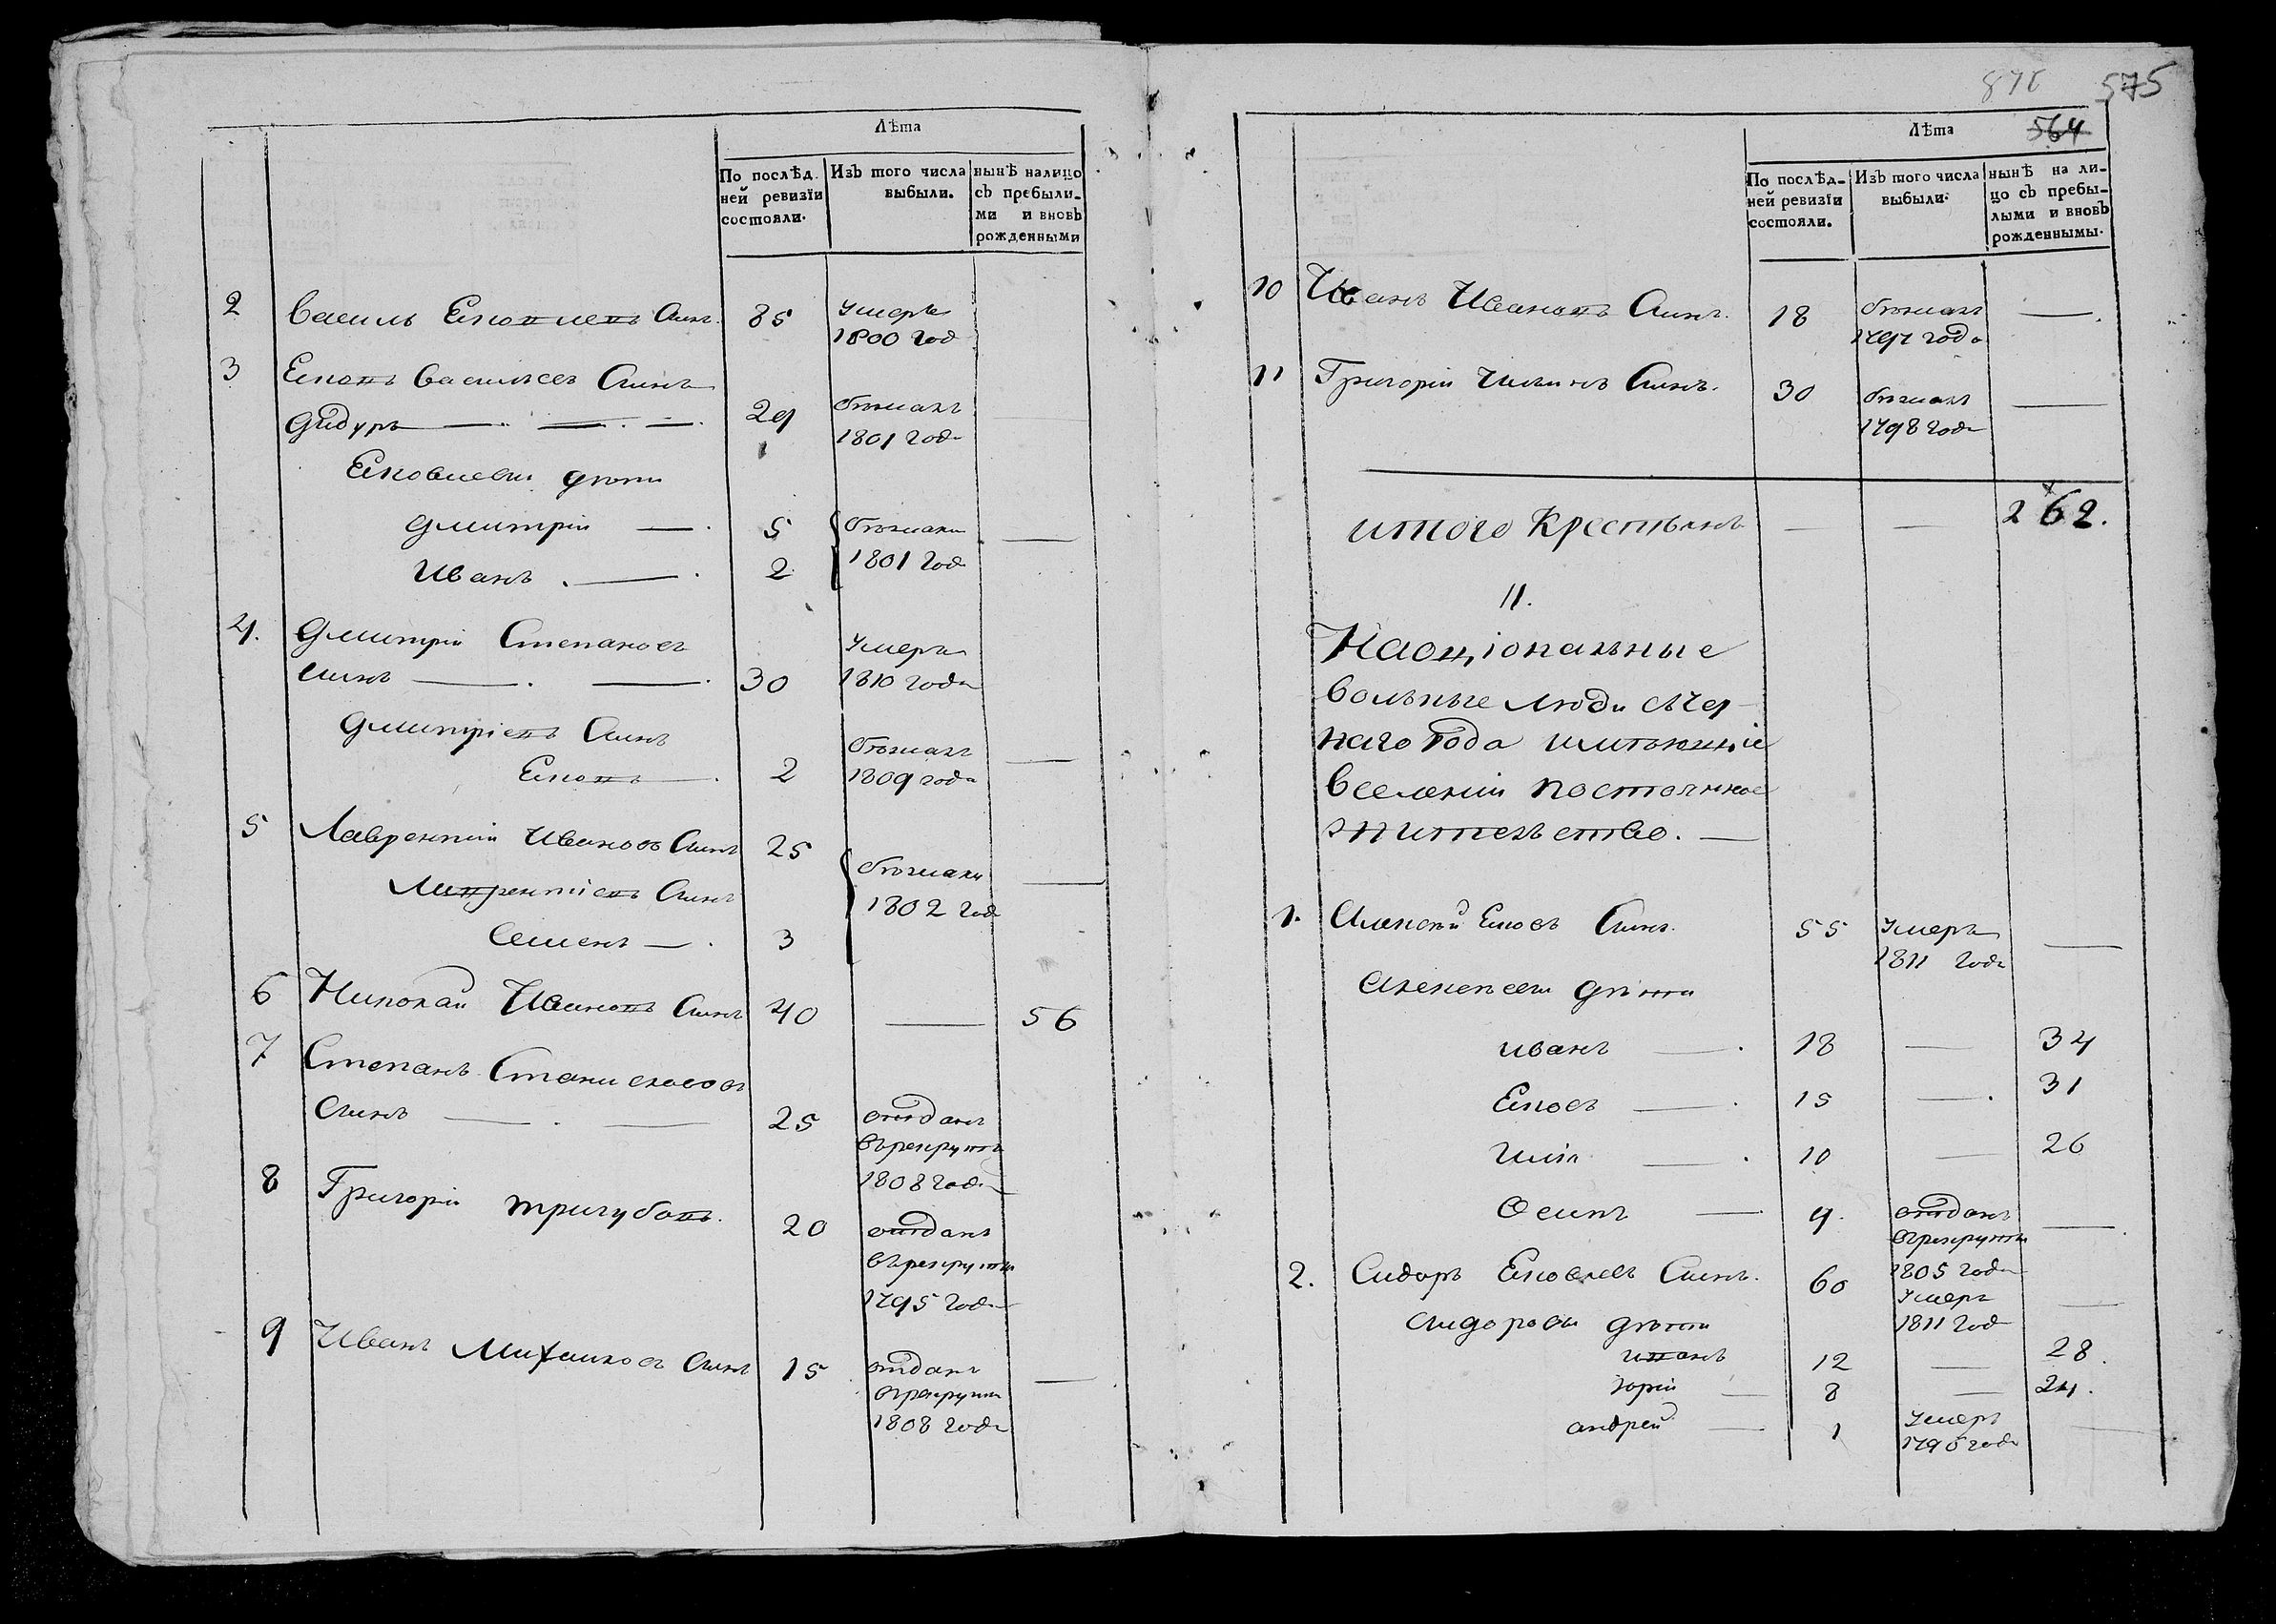 Лѣта
По послѣд. ней ревизїи состояли.
Изъ того числа выбыли.
нынѣ налицо съ пребылими и вновь рожденными
2 Василь Ековлевъ Синъ. 85 Умеръ
1800 год
3 Ековъ Васильевъ Синъ
29 бѣжалъ
1801 года
Ековлеви дѣти
Дмитрій — 5 бѣжали —
Иванъ — 2 1801 год
4. Дмитрій Степановъ Умеръ
Синъ — 30 1810 года
Дмитріевъ Синъ бѣжалъ —
Ековъ — 2 1809 года
5 Лаврентій Ивановъ Синъ 25 бѣжали —
Лавреентіевъ Синъ 1802 года
Семенъ — 3
6 Николай Ивановъ Синъ 40 — 56
7 Степанъ Станиславовъ
Синъ — 25 отданъ
въ рекруты
1808 года
8 Григорій Тригубовъ. 20 отданъ
въ рекруты
1795 года
9 Иванъ Михайловъ Синъ 15 отданъ —
въ рекруты
1808 года
575
Лѣта 564
По послѣд-ней ревизїи состояли.
Изъ того числа выбыли.
нынѣ на ли-цо съ пребы-лыми и вновъ рожденнымы.
10 Иванъ Ивановъ Синъ. 18 бѣжалъ —
1797 года
11 Григорій Ильинъ Синъ. 30 бѣжалъ —
1798 года
итого крестьянъ — — 262.
II.
Національные
вольные люди
наго рода имѣющіе
вселеніи постоянное
жительство. —
1. Алексѣй Ековъ Синъ. 55 Умеръ —
1811 года
Алексѣеви дѣти
иванъ — 18 — 34
Ековъ — 15 — 31
Илія — 10 — 26
Осипъ — 9. отданъ —
въ рекруты
1805 года
2. Сидоръ Ековлевъ Синъ. 60 Умеръ —
1811 год
Сидорови дѣти
иванъ 12 — 28.
Юрій — 8 — 24.
андрей — 1 Умеръ —
1795 года